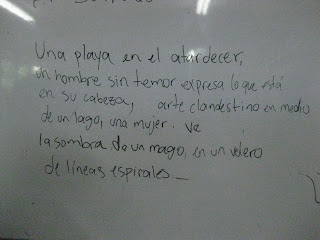 Una playa en el atardecer,
un hombre sin temor expresa lo que está
en su cabeza, arte clandestino en medio
de un lago, una mujer. Ve
la sombra de un mago, en un velero
de líneas espirales_